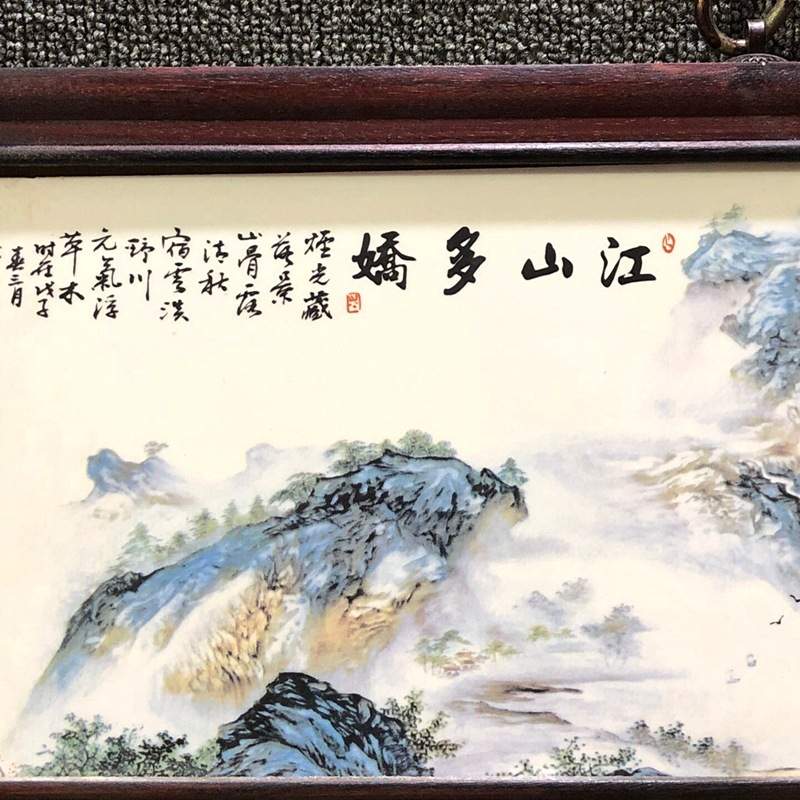 江山多嬌
煙光藏
落景
山骨露
清秋
宿雲淡
野川
元氣浮
草木
時在戊子
春三月